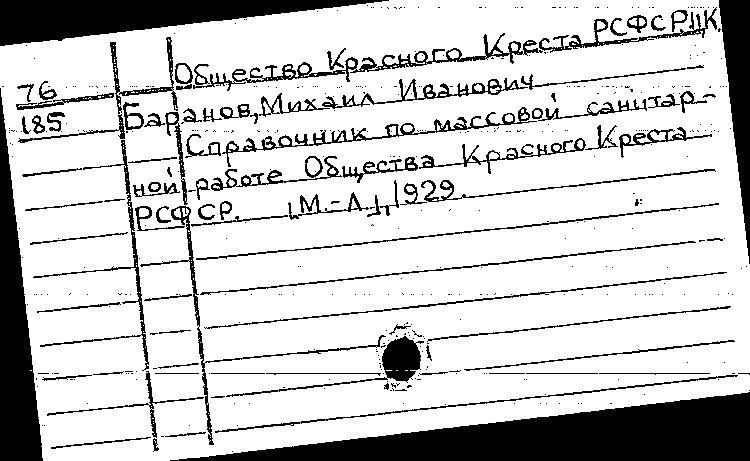 Общество Красного Креста РСФСР. ЦК
76
185 Баранов, Михаил Иванович
Справочник по массовой санитар-
ной работе Общества Красного Креста
РСФСР. [М.-Л.], 1929.